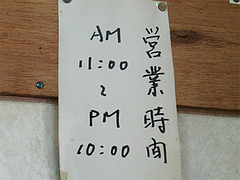 営業時間
AM
11:00
〜
PM
10:00